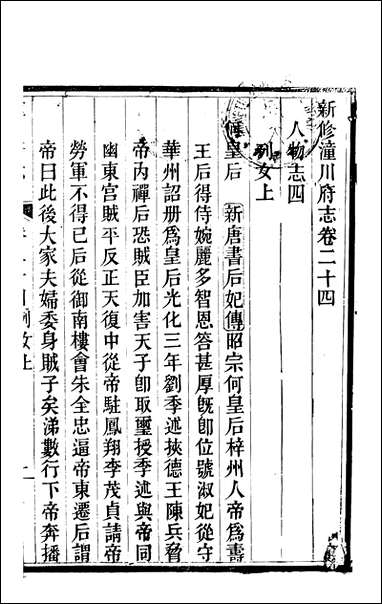 新修潼川府志卷二十四
人物志四
列女上
何皇后　新唐書后妃傳昭宗何皇后梓州人帝爲壽
王后得侍婉麗多智恩答甚厚旣卽位號淑妃從守
華州詔册爲皇后光化三年劉季述挾德王陳兵脅
帝內禪后恐賊臣加害天子卽取璽授季述與帝同
幽東宮賊平反正天復中從帝駐鳳翔李茂貞請帝
勞軍不得已后從御南樓會朱全忠逼帝東遷后謂
帝曰此後大家夫婦委身賊子矣涕數行下帝奔播
列女上